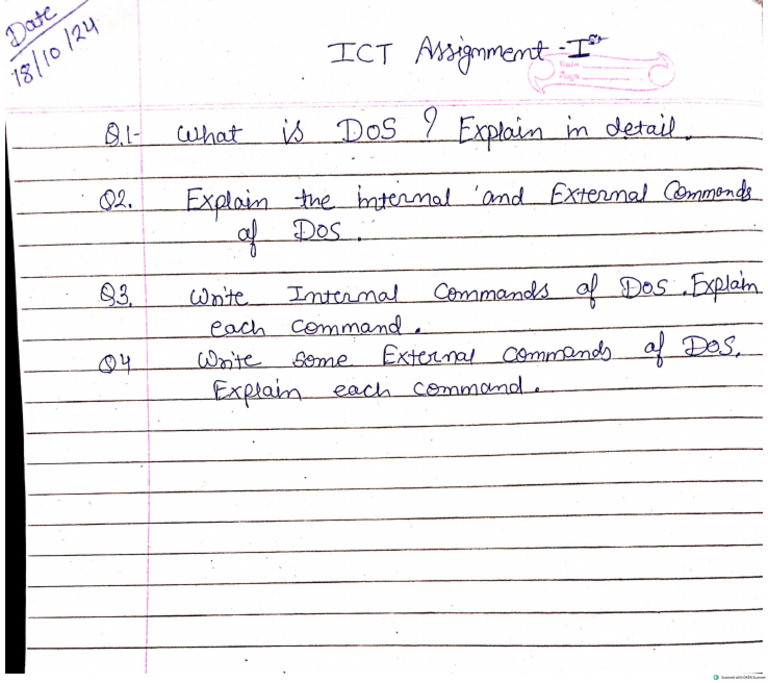 Date
18/10/24
ICT Assignment - Ist
Q.1- What is DOS ? Explain in detail.
Q2. Explain the internal and External Commands
of DOS.
Q3. Write Internal Commands of DOS. Explain
each command.
Q4 Write some External commands of DOS.
Explain each command.
Scanned with OKEN Scanner